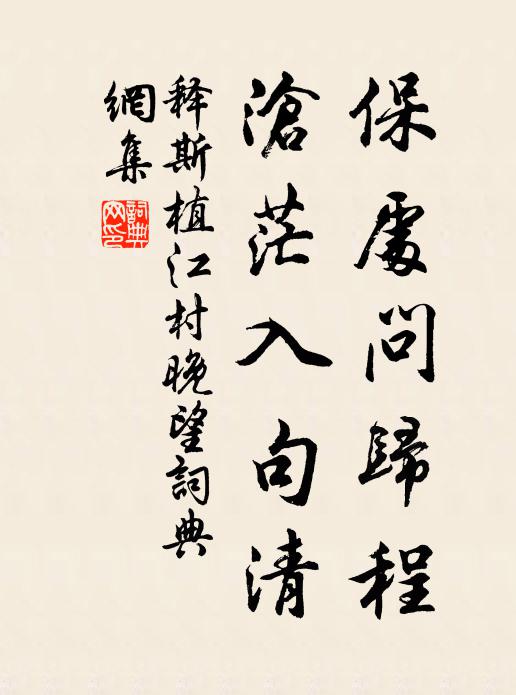 保處問歸程
滄茫入句清
释斯植江村晚望詞典
網集
詞典網印